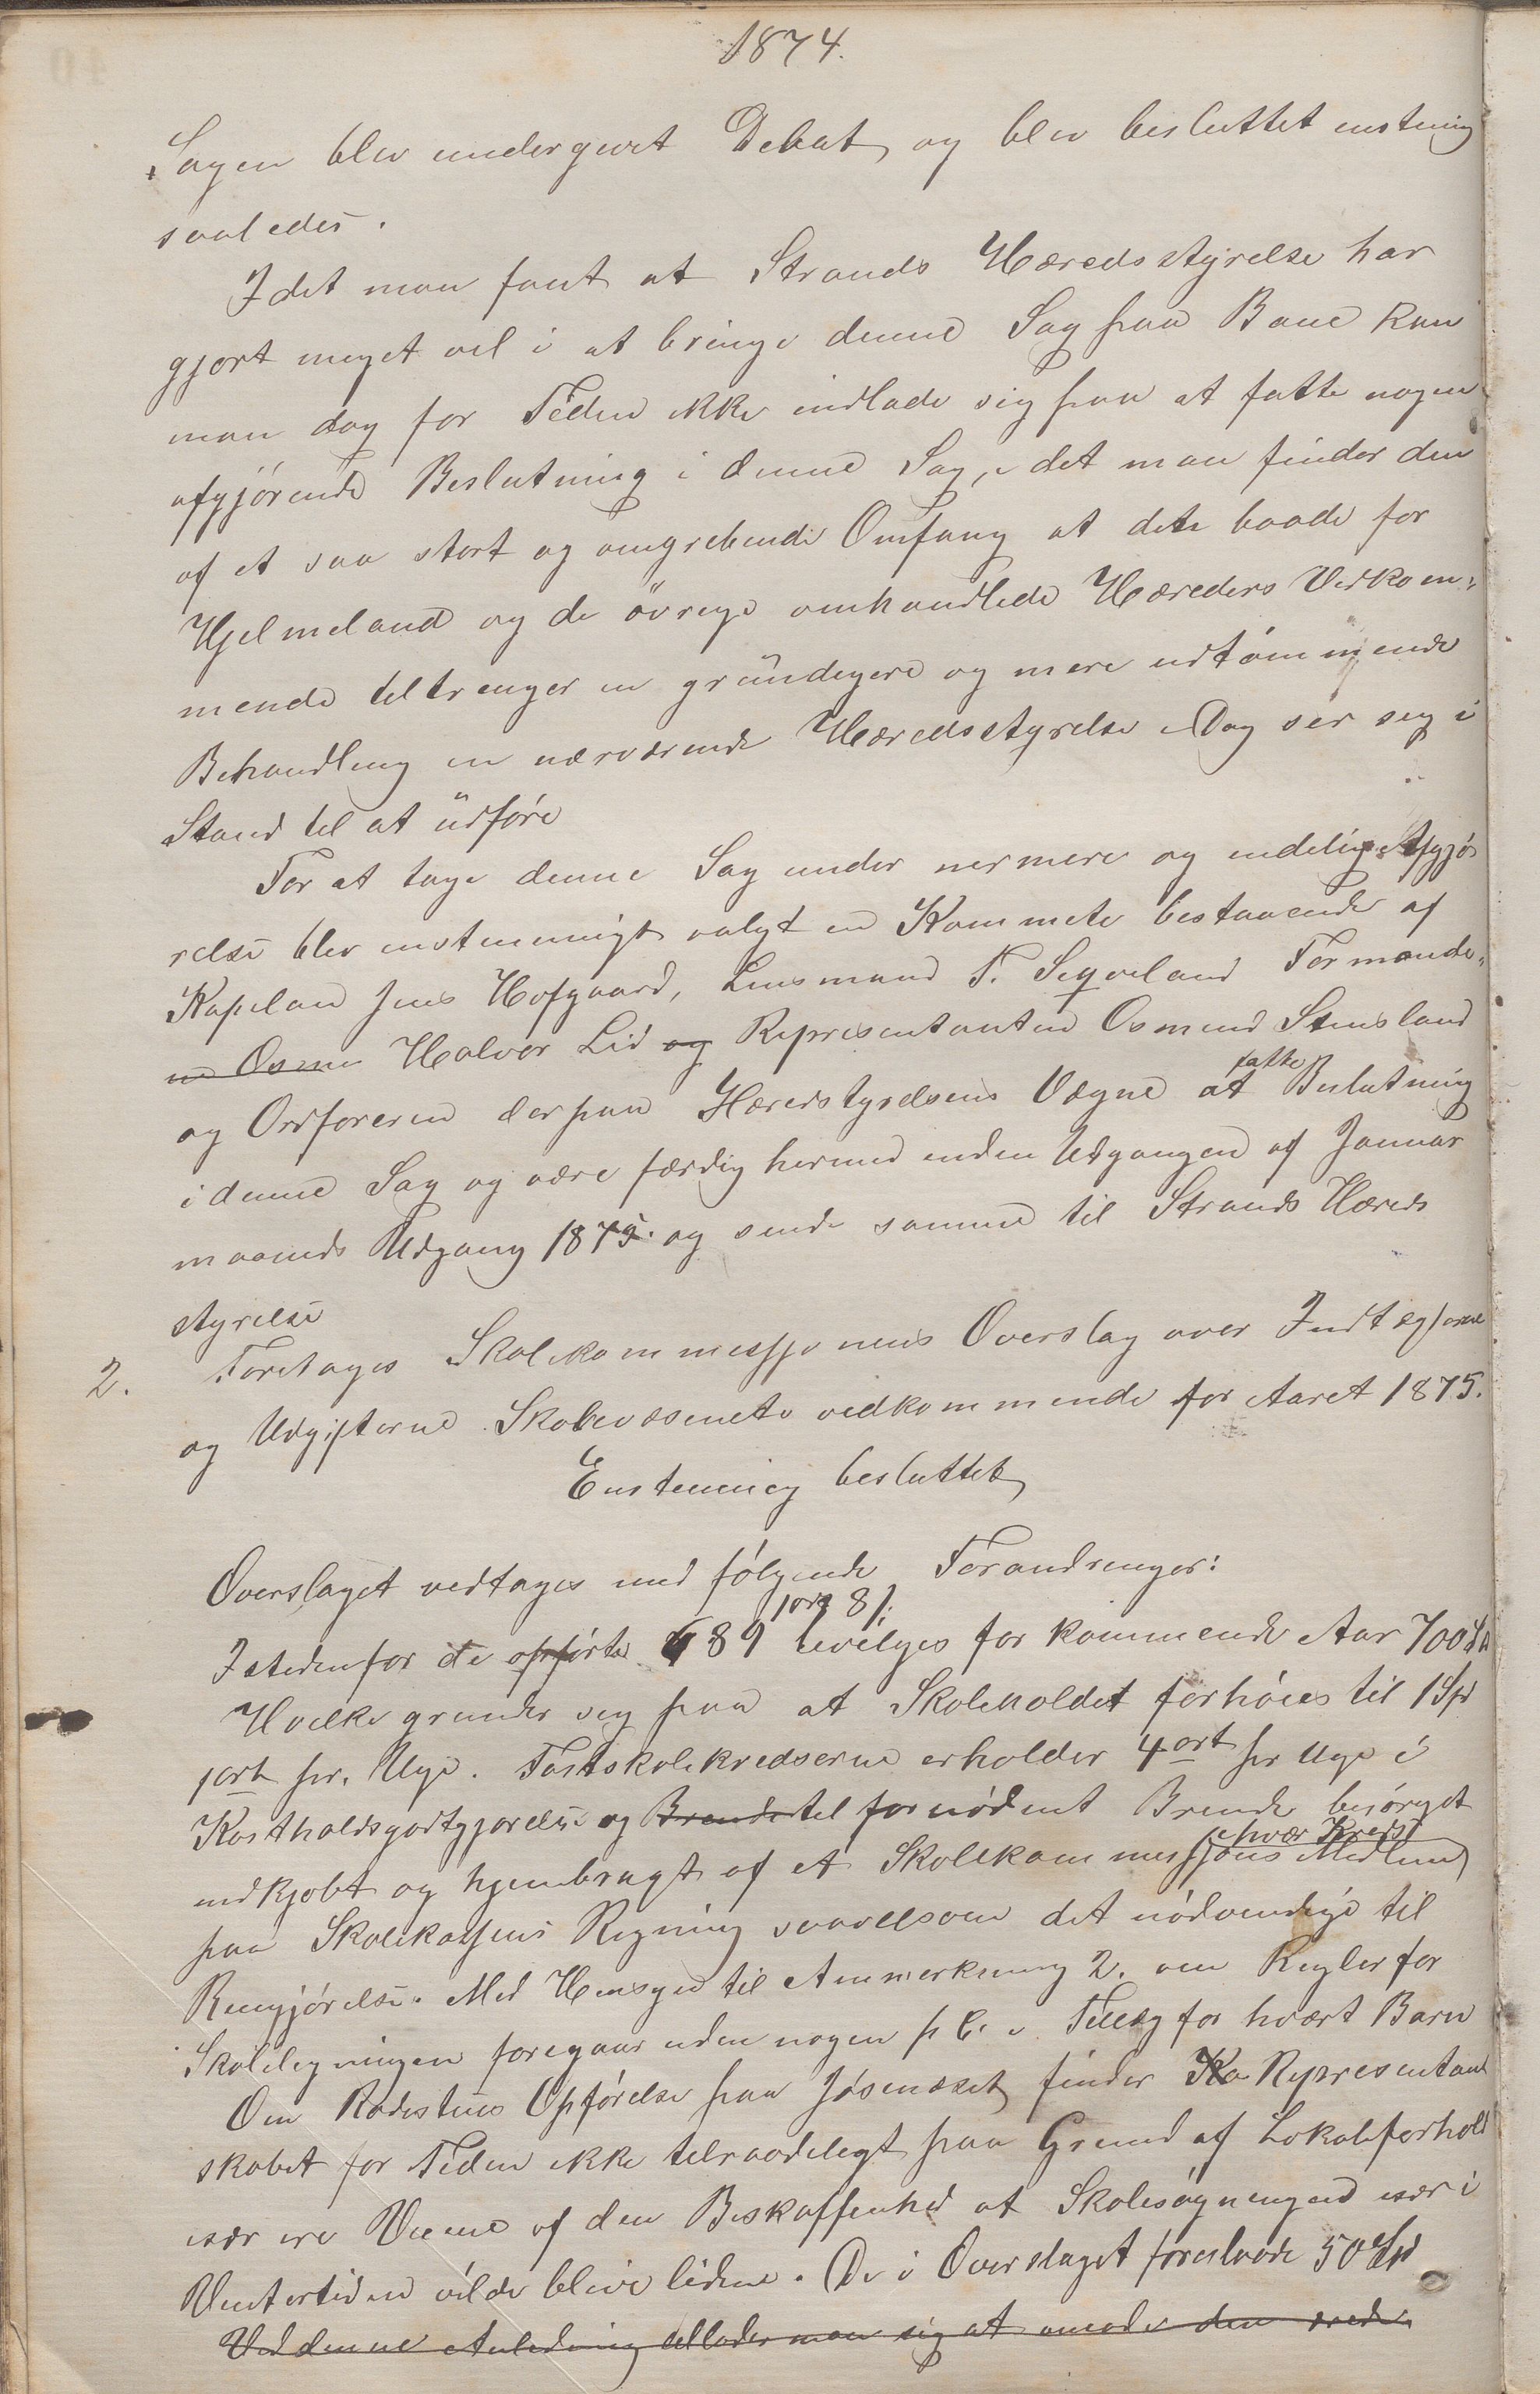 1874.
Sagen blev undergivet Debat og blev besluttet enstemig
saaledes.
I det man fant at Strands Heredsstyrelse har
gjort meget vel i at bringe denne Sag paa Bane kan
man dog for Tiden ikke indlade sig paa at fatte nogen
afgjørende Beslutning i denne Sag, i det man finder den
af et saa stort og omgribende Omfang at det baade for
Hjelmeland og de øvrige omhandlede Hæreders Vedkom-
mende tiltrenger en grundigere og mere udtømmende
Behandling en nærværende Heredsstyrelse i Dag ser seg i
Stand til at udføre
For at tage denne Sag under nermere og endelig Afgjø
relse blev enstemmigt valgt en Kommete bestaaende af
Kapelan Jens Hofgaard, Lensmand T. Segveland Formænde-
ne Osmu Halvor Lid og Representanten Osmund Stensland
og Ordføreren der paa Heredstyrelsens Vegne at fatte Beslutning
i denne Sag og være færdig hermed inden Udgangen af Januar
maaneds Udgang 1875. og sende samme til Strands Hereds
styrelse
2. Foretages Skolekommesjonens Overslag over Indtægterne
og Udgifterne Skolevæsenete vedkommende for Aaret 1875.
Enstemmig besluttet
Overslaget vedtages med følgende Forandringer:
1 ort 8 s:
Istedenfor de opførte 689 bevilges for kommende Aar 700 Sp
Hvilke grunder seg paa at Skoleholdet forhøies til 1 Spd
1 ort pr. Uge. Fastskolekredserne erholder 4 ort pr Uge i
Kostholdsgodtgjørelse og Brende til fornødent Brende besørget
i hvær Kreds
indkjøbt og hjembragt af et Skolekommesjons Medlem
paa Skolekassens Regning saavelsom det nødvendige til
Rengjørelse. Med Hensyn til Anmerkning 2. om Regler for
Skoleligningen foregaar uden nogen p C. i Tillæg for hvært Barn
Om Rodestues Opførelse paa Jøsenæset finder Ko Representant
skabet for Tiden ikke telraadeligt paa Grund af Lokalforhold
især ere Veiene af den Beskaffenhed at Skolesøgningen især i
Ventertiden vilde blive liden. De i Overslaget foreslaaede 50 Spd
Ved denne Anledning tillader man sig at anmode den ærede